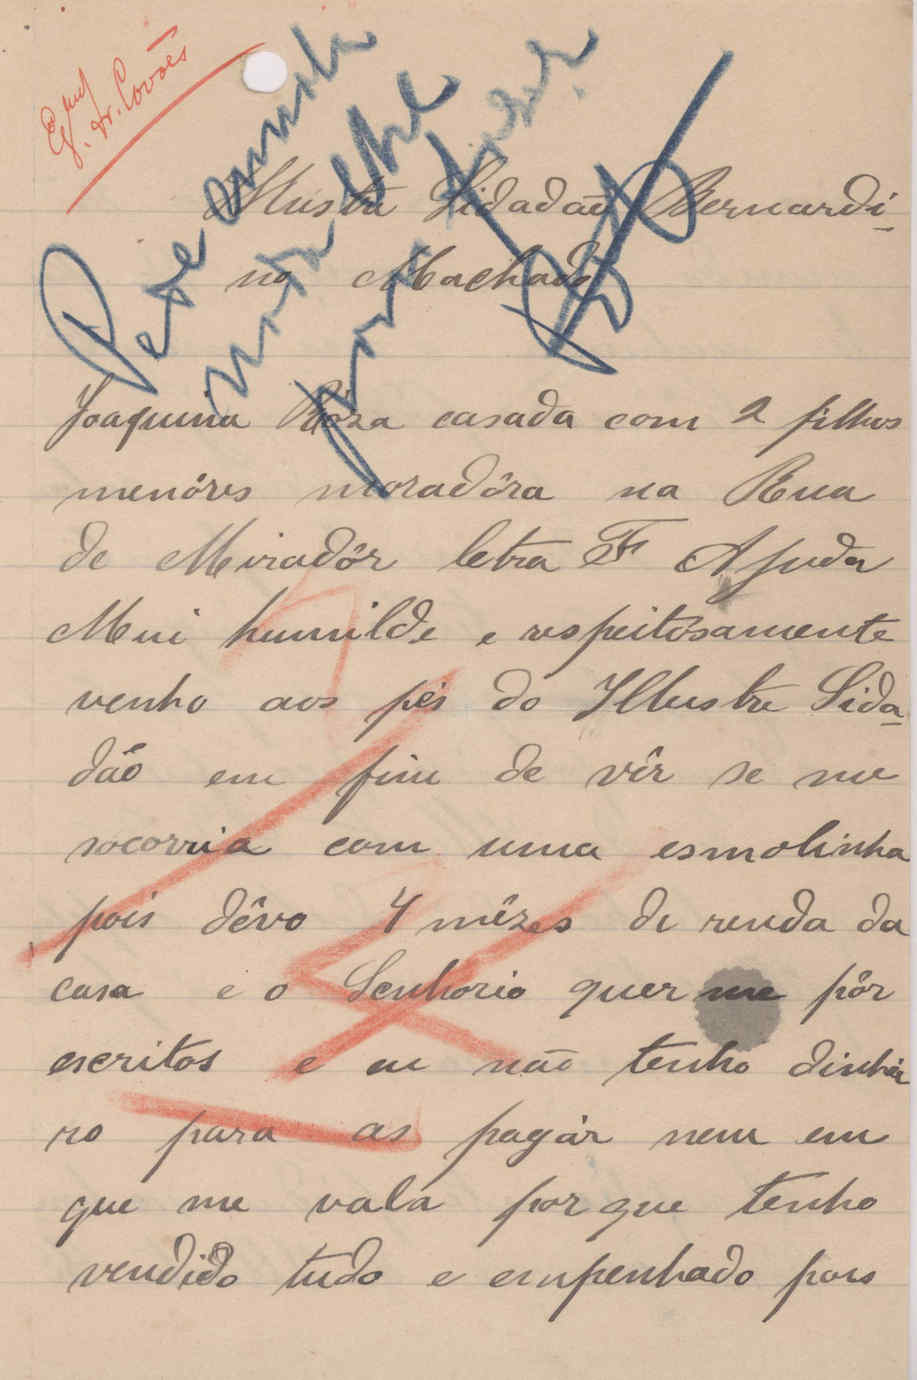 Illustre Sidadão Bernardi-
no Machado
Joaquina Róza casada com 2 filhos
menóres moradôra na Rua
de Miradôr letra F Ajuda
Mui humilde e respeitósamente
venho aos pés do Illustre Sida-
dão em fim de vêr se me
socorria com uma esmolinha
pois dêvo 4 mêzes de renda da
casa e o Senhorio quer me pôr
escritos e eu não tenho dinhei
ro para as pagár nem em
que me vala porque tenho
vendido tudo e empenhado pois